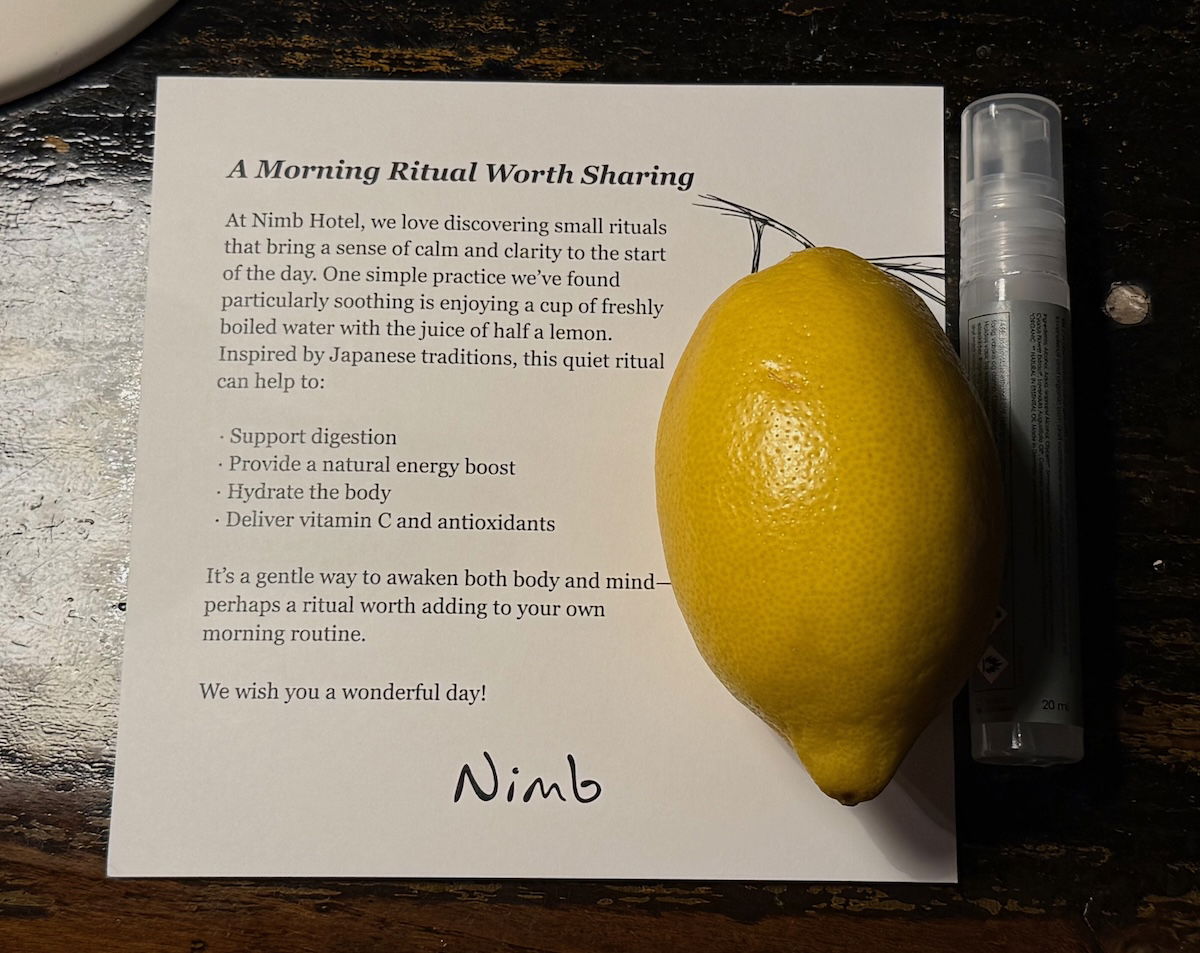 A Morning Ritual Worth Sharing
At Nimb Hotel, we love discovering small rituals
that bring a sense of calm and clarity to the start
of the day. One simple practice we’ve found
particularly soothing is enjoying a cup of freshly
boiled water with the juice of half a lemon.
Inspired by Japanese traditions, this quiet ritual
can help to:
· Support digestion
· Provide a natural energy boost
· Hydrate the body
· Deliver vitamin C and antioxidants
It’s a gentle way to awaken both body and mind—
perhaps a ritual worth adding to your own
morning routine.
We wish you a wonderful day!
Nimb
20 ml